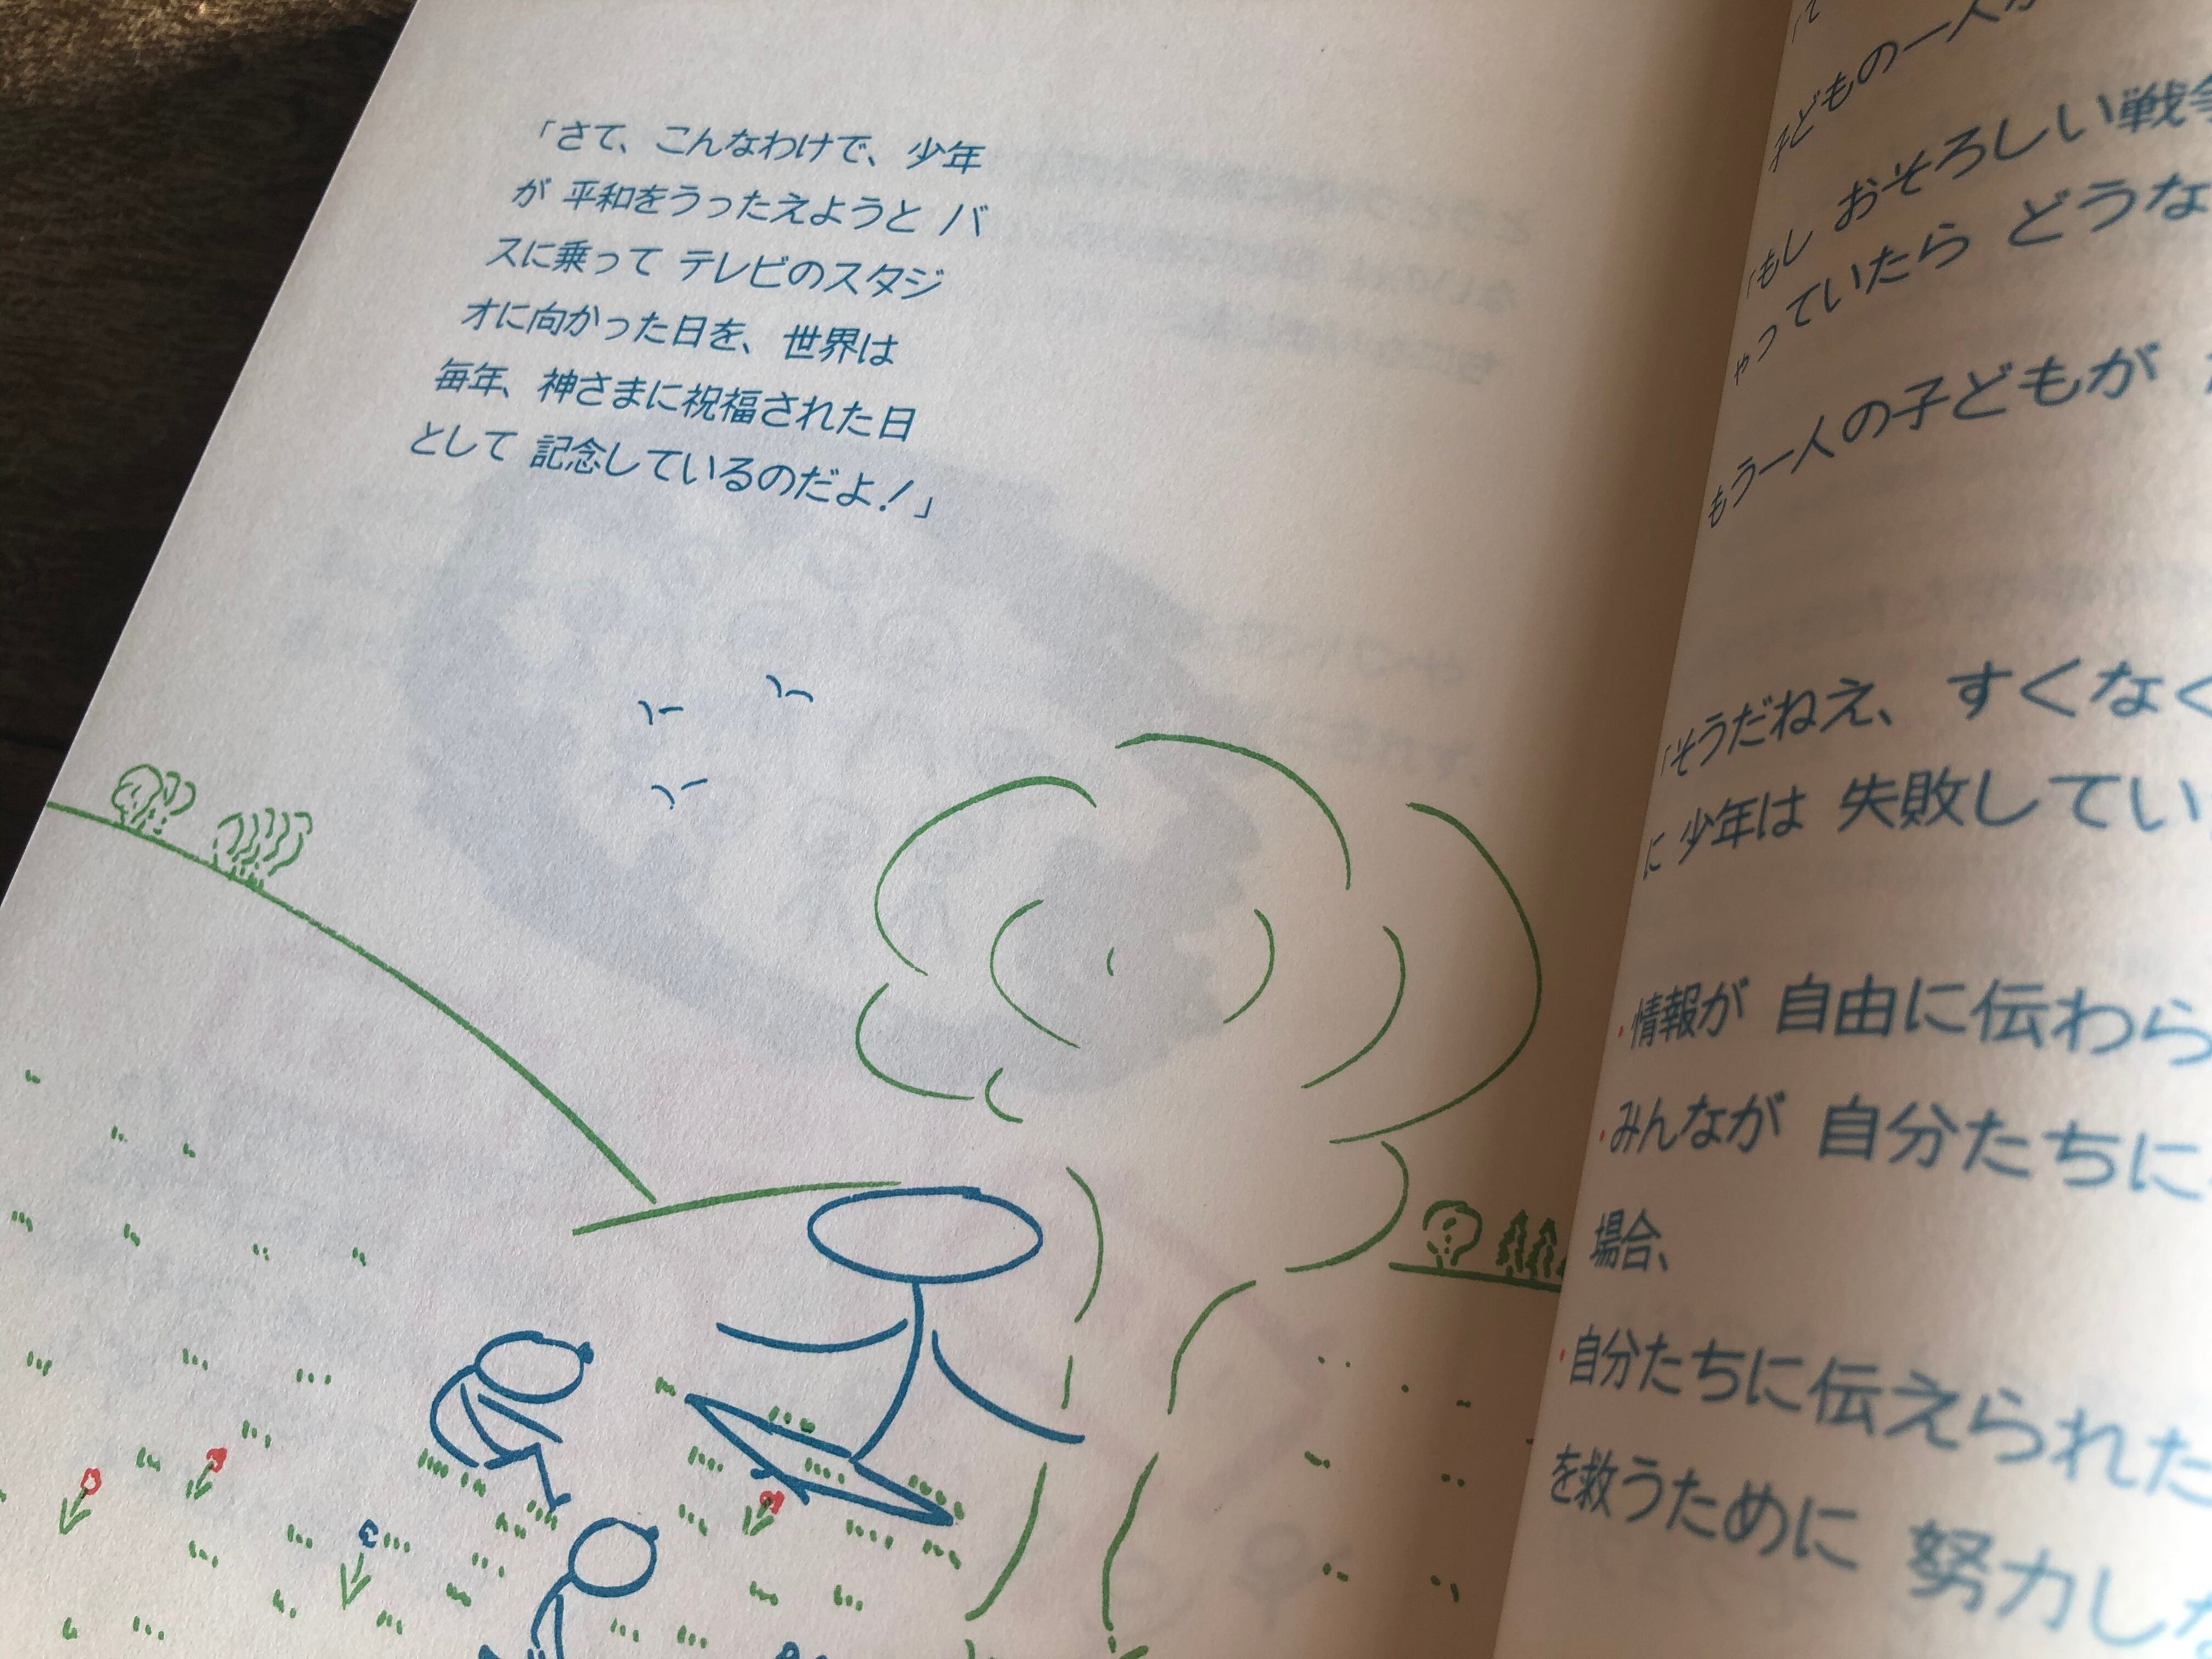 「さて、こんなわけで、少年
が 平和をうったえようと バ
スに乗って テレビのスタジ
オに向かった日を、世界は
毎年、神さまに祝福された日
として 記念しているのだよ！」
子どもの一人が
「もし おそろしい戦争
やっていたら どうな
もう一人の子どもが
「そうだねえ、すくなく
に 少年は 失敗してい
・情報が 自由に伝わら
・みんなが 自分たちに
場合、
・自分たちに伝えられた
を救うために 努力しな